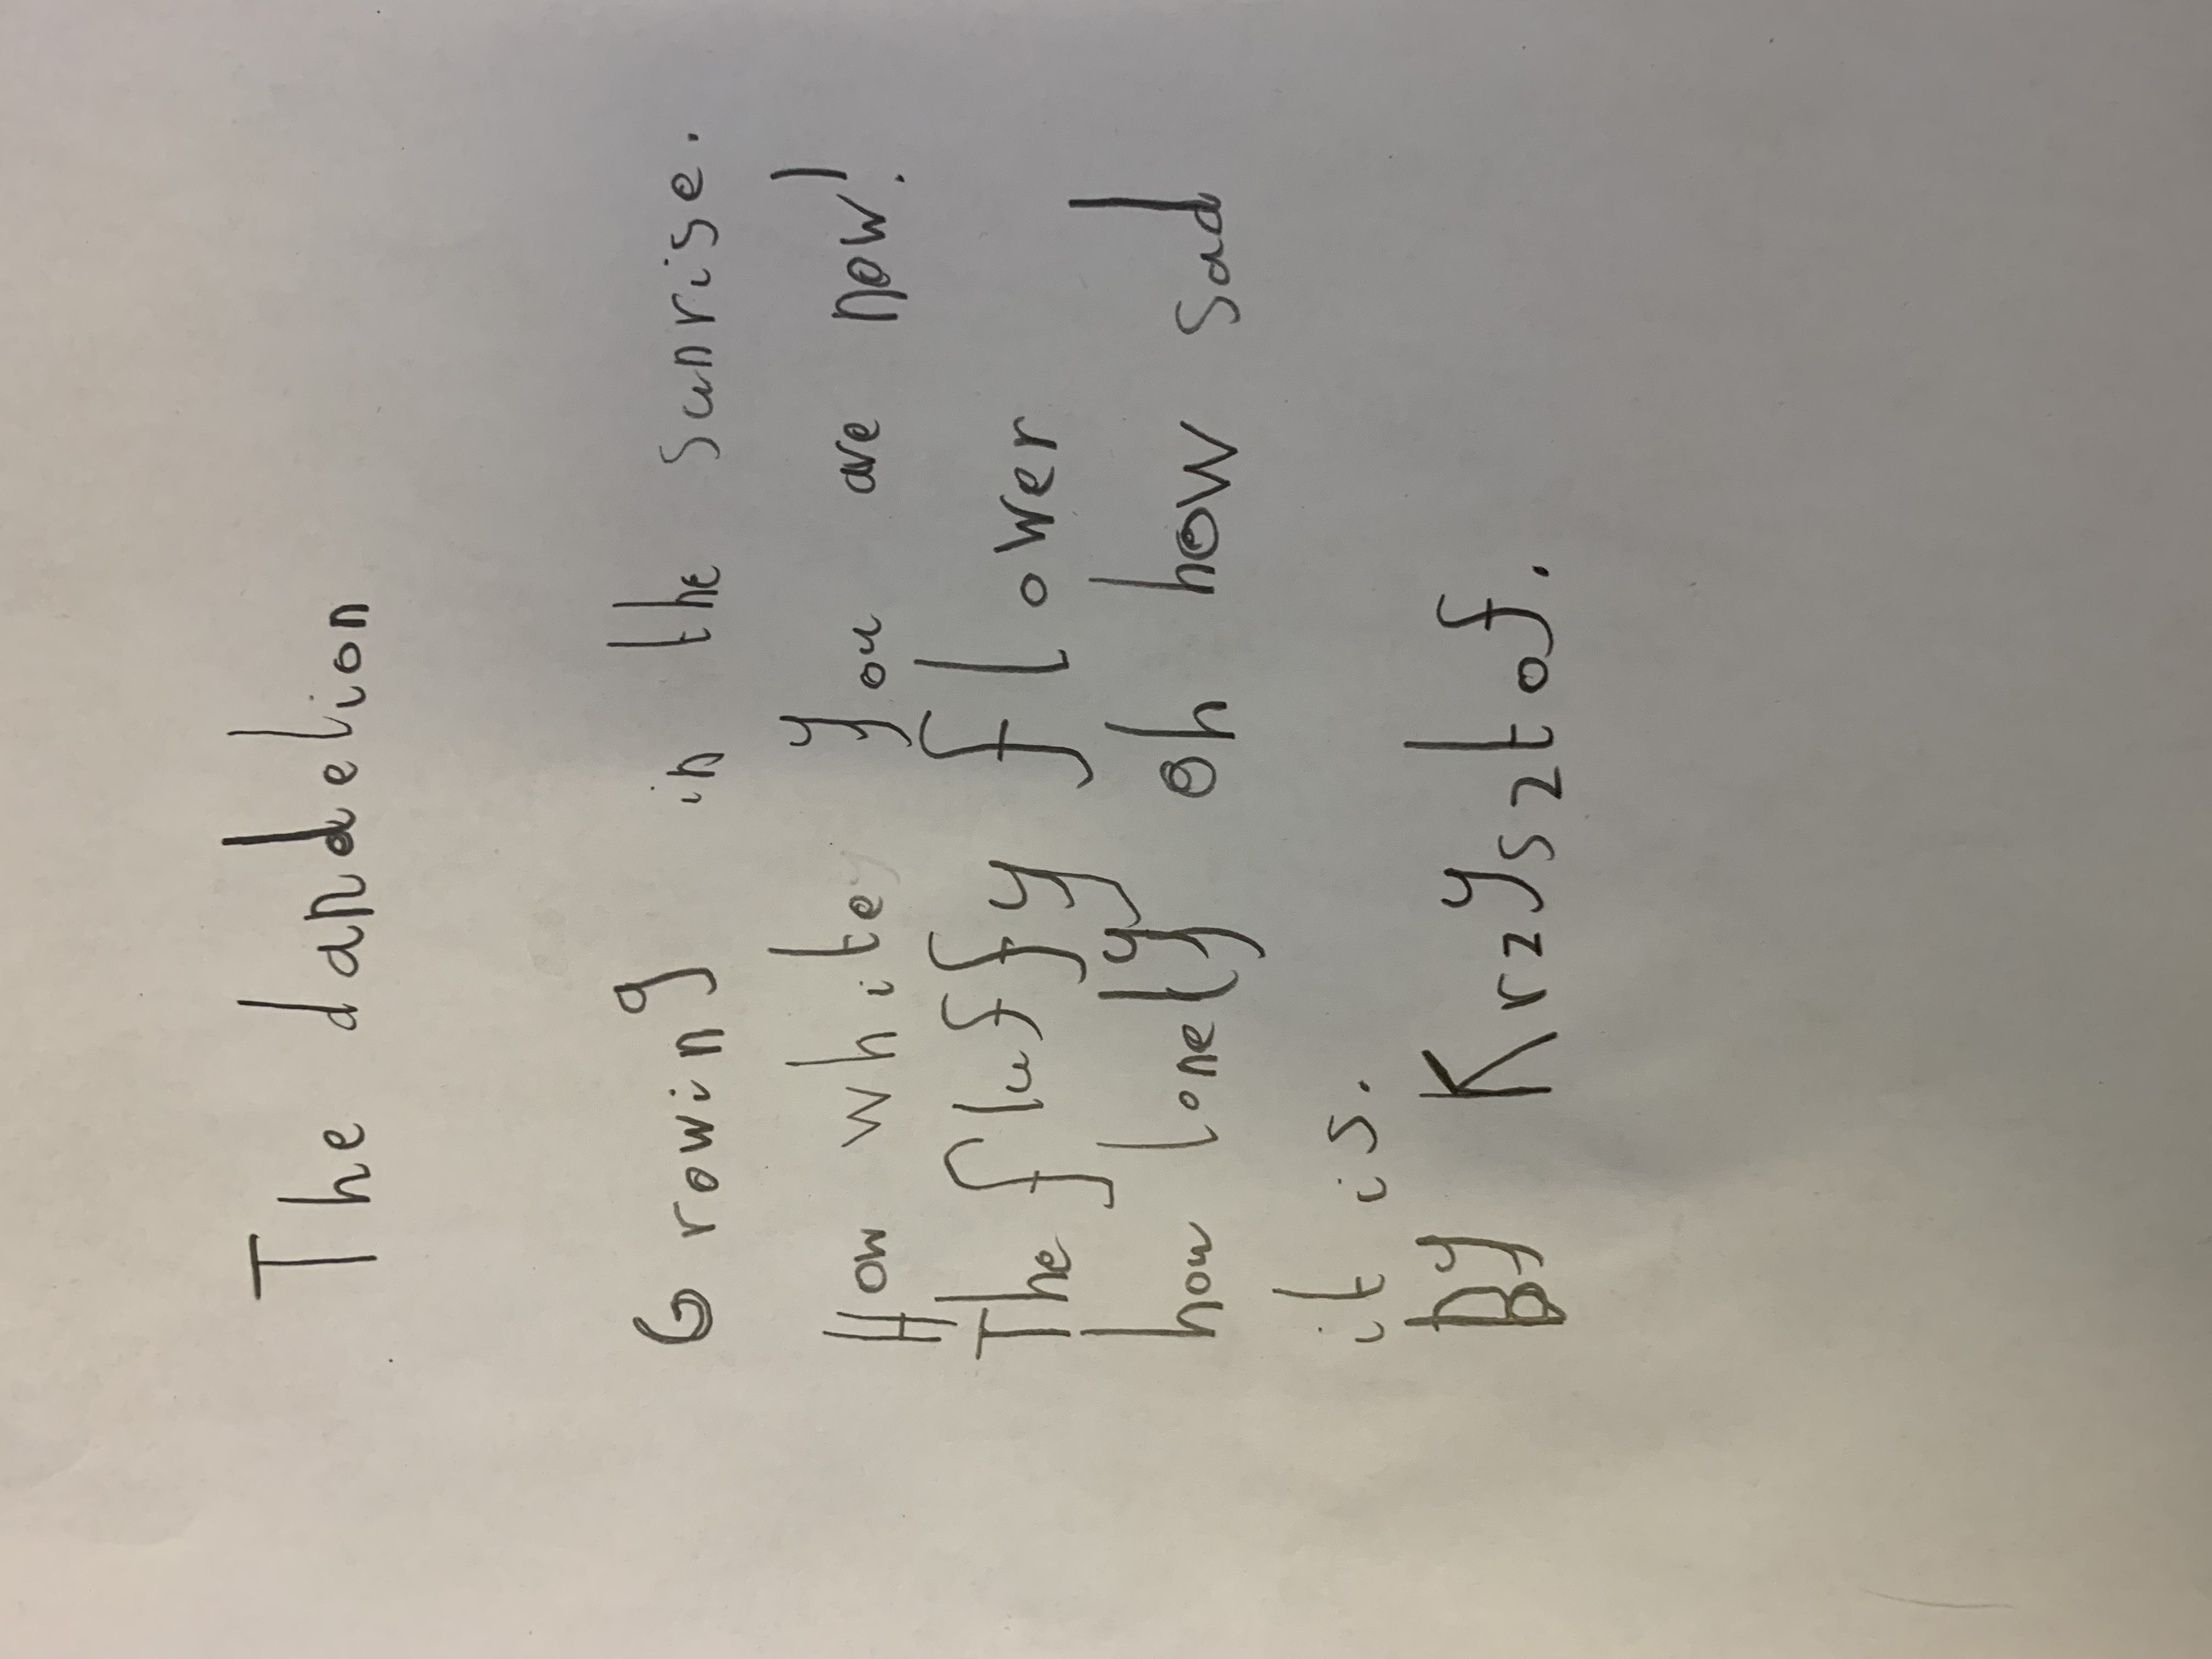 The dandelion
Growing in the sunrise.
How white you are now!
The fluffy flower
how lonely oh how sad
it is.
By Krzysztof.